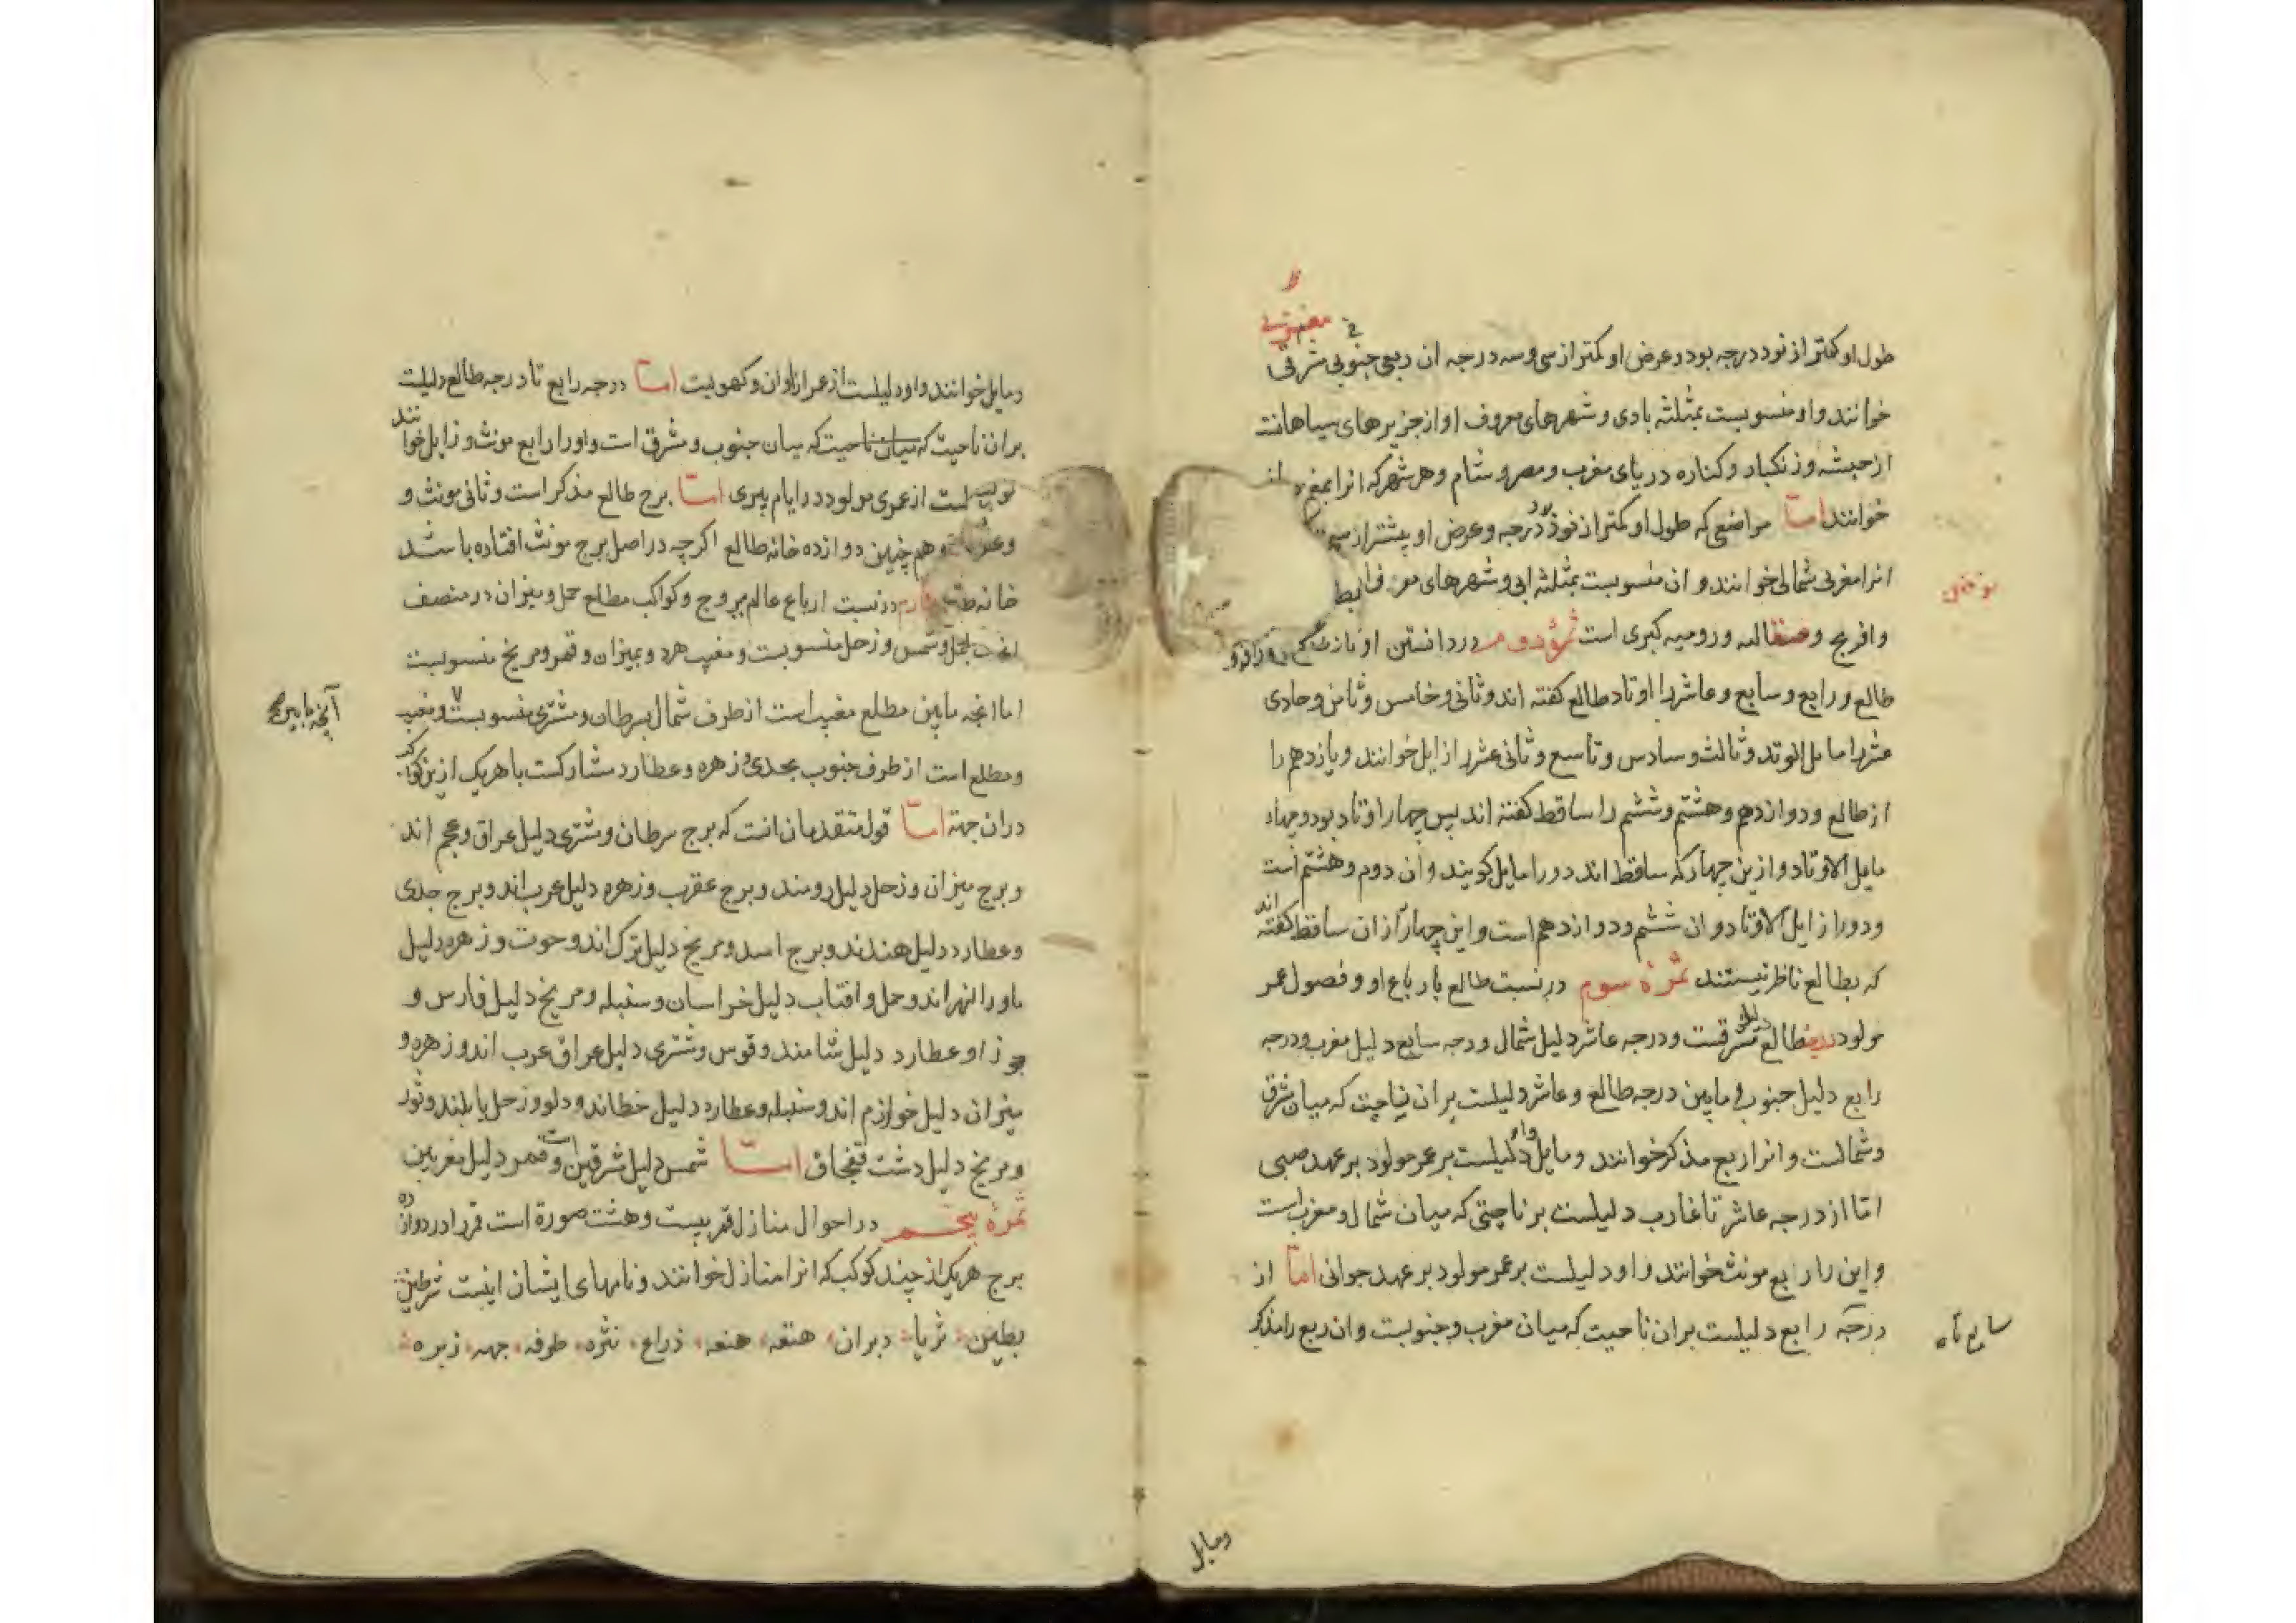 طول او کمتر از نود درجه بود و عرض او کمتر از سی و سه درجه ان ربعی جنوبی شرقی
خوانند و او منسوبست بمثلثه بادی و شهرهای معروف او از جزیرهای سیاهانت
از حبشه و زنکبار و کناره دریای مغرب و مصر و شام و هر شهر که انرا
خوانند امّا مواضعی که طول او کمتر از نود درجه و عرض او بیشتر از سی
انرا مغربی شمالی خوانند و ان منسوبست بمثلثه ابی و شهرهای
و افرنج و صقالبه و رومیه کبری است ثمرۀ دوم در دانستن اوتاد
طالع و رابع و سابع و عاشر را اوتاد طالع کفته اند و ثانی و خامس و ثامن و حادی
عشر را مایل الوتد و ثالث و سادس و تاسع و ثانی عشر را زایل خوانند و یازدهم را
از طالع و دوازدهم و هشتم و ششم را ساقط کفته اند پس چهار اوتاد بود و چهار
مایل الاوتاد و ازین چهار که ساقط اند دو را مایل کویند و ان دوم و هشتم است
و دو را زایل الاوتاد و ان ششم و دوازدهم است و این چهار از ان ساقط کفته اند
که بطالع ناظر نیستند ثمرۀ سوم در نسبت طالع بارباع او و فصول عمر
مولود طالع دلیل مشرقست و درجه عاشر دلیل شمال و درجه سابع دلیل مغرب و درجه
رابع دلیل جنوب و مابین درجه طالع و عاشر دلیلست بران ناحیت که میان شرق
و شمالست و انرا ربع مذکر خوانند و مایل و او دلیلست بر عمر مولود بر عهد صبی
امّا از درجه عاشر تا غارب دلیلست بر ناحیتی که میان شمال و مغرب است
و این را رابع مونث خوانند و او دلیلست بر عمر مولود بر عهد جوانی امّا از
درجه رابع دلیلست بران ناحیت که میان مغرب و جنوبست و ان ربع را مذکر
سابع تا
ومایل
ومایل خوانند و او دلیلست از عمر اوان و کهولت امّا درجه رابع تا درجه طالع دلیلت
بران ناحیت که میان ناحیت که میان جنوب و مشرق است و او را رابع مونث و زایل خوانند
است از عمری مولود در ایام پیری امّا برج طالع مذکر است و ثانی مونث و
و همچنین دوازده خانه طالع اکرچه در اصل برج مونث افتاده باشد
خانه در نسبت ارباع عالم ببروج و کواکب مطلع حمل و میزان در منتصف
بحمل و شمس و زحل منسوبست و مغیب هردو بمیزان و قمر و مریخ منسوبست
اما انجه مابین مطلع مغیب است از طرف شمال بسرطان و مشتری منسوبست و مغیب
آنچه مابین
و مطلع است از طرف جنوب بجدی و زهره و عطارد مشارکست با هریک ازین کواکب
دران جهة امّا قول متقدمان انت که برج سرطان و مشتری دلیل عراق و عجم اند
و برج میزان و زحل دلیل رومند و برج عقرب و زهره دلیل عرب اند و برج جدی
و عطارد دلیل هندند و برج اسد و مریخ دلیل ترک اند و حوت و زهره دلیل
ماورالنهر اند و حمل و افتاب دلیل خراسان و سنبله و مریخ دلیل فارس و
جوزا و عطارد دلیل شامند و قوس و مشتری دلیل عراق عرب اند و زهره و
میزان دلیل خوارزم اند و سنبله و عطارد دلیل خطااند و دلو و زحل و ثور
و مریخ دلیل دشت قفجاق امّا شمس دلیل شرقین است و قمر دلیل مغربین
ثمرۀ پنجم در احوال منازل قمر بیست و هشت صورة است قمر را در دوازده
برج هریک از چند کوکب که انرا منازل خوانند و نامهای ایشان اینست شرطین
بطین ثریا دبران هقعه هنعه ذراع نثره طرفه جبهه زبره